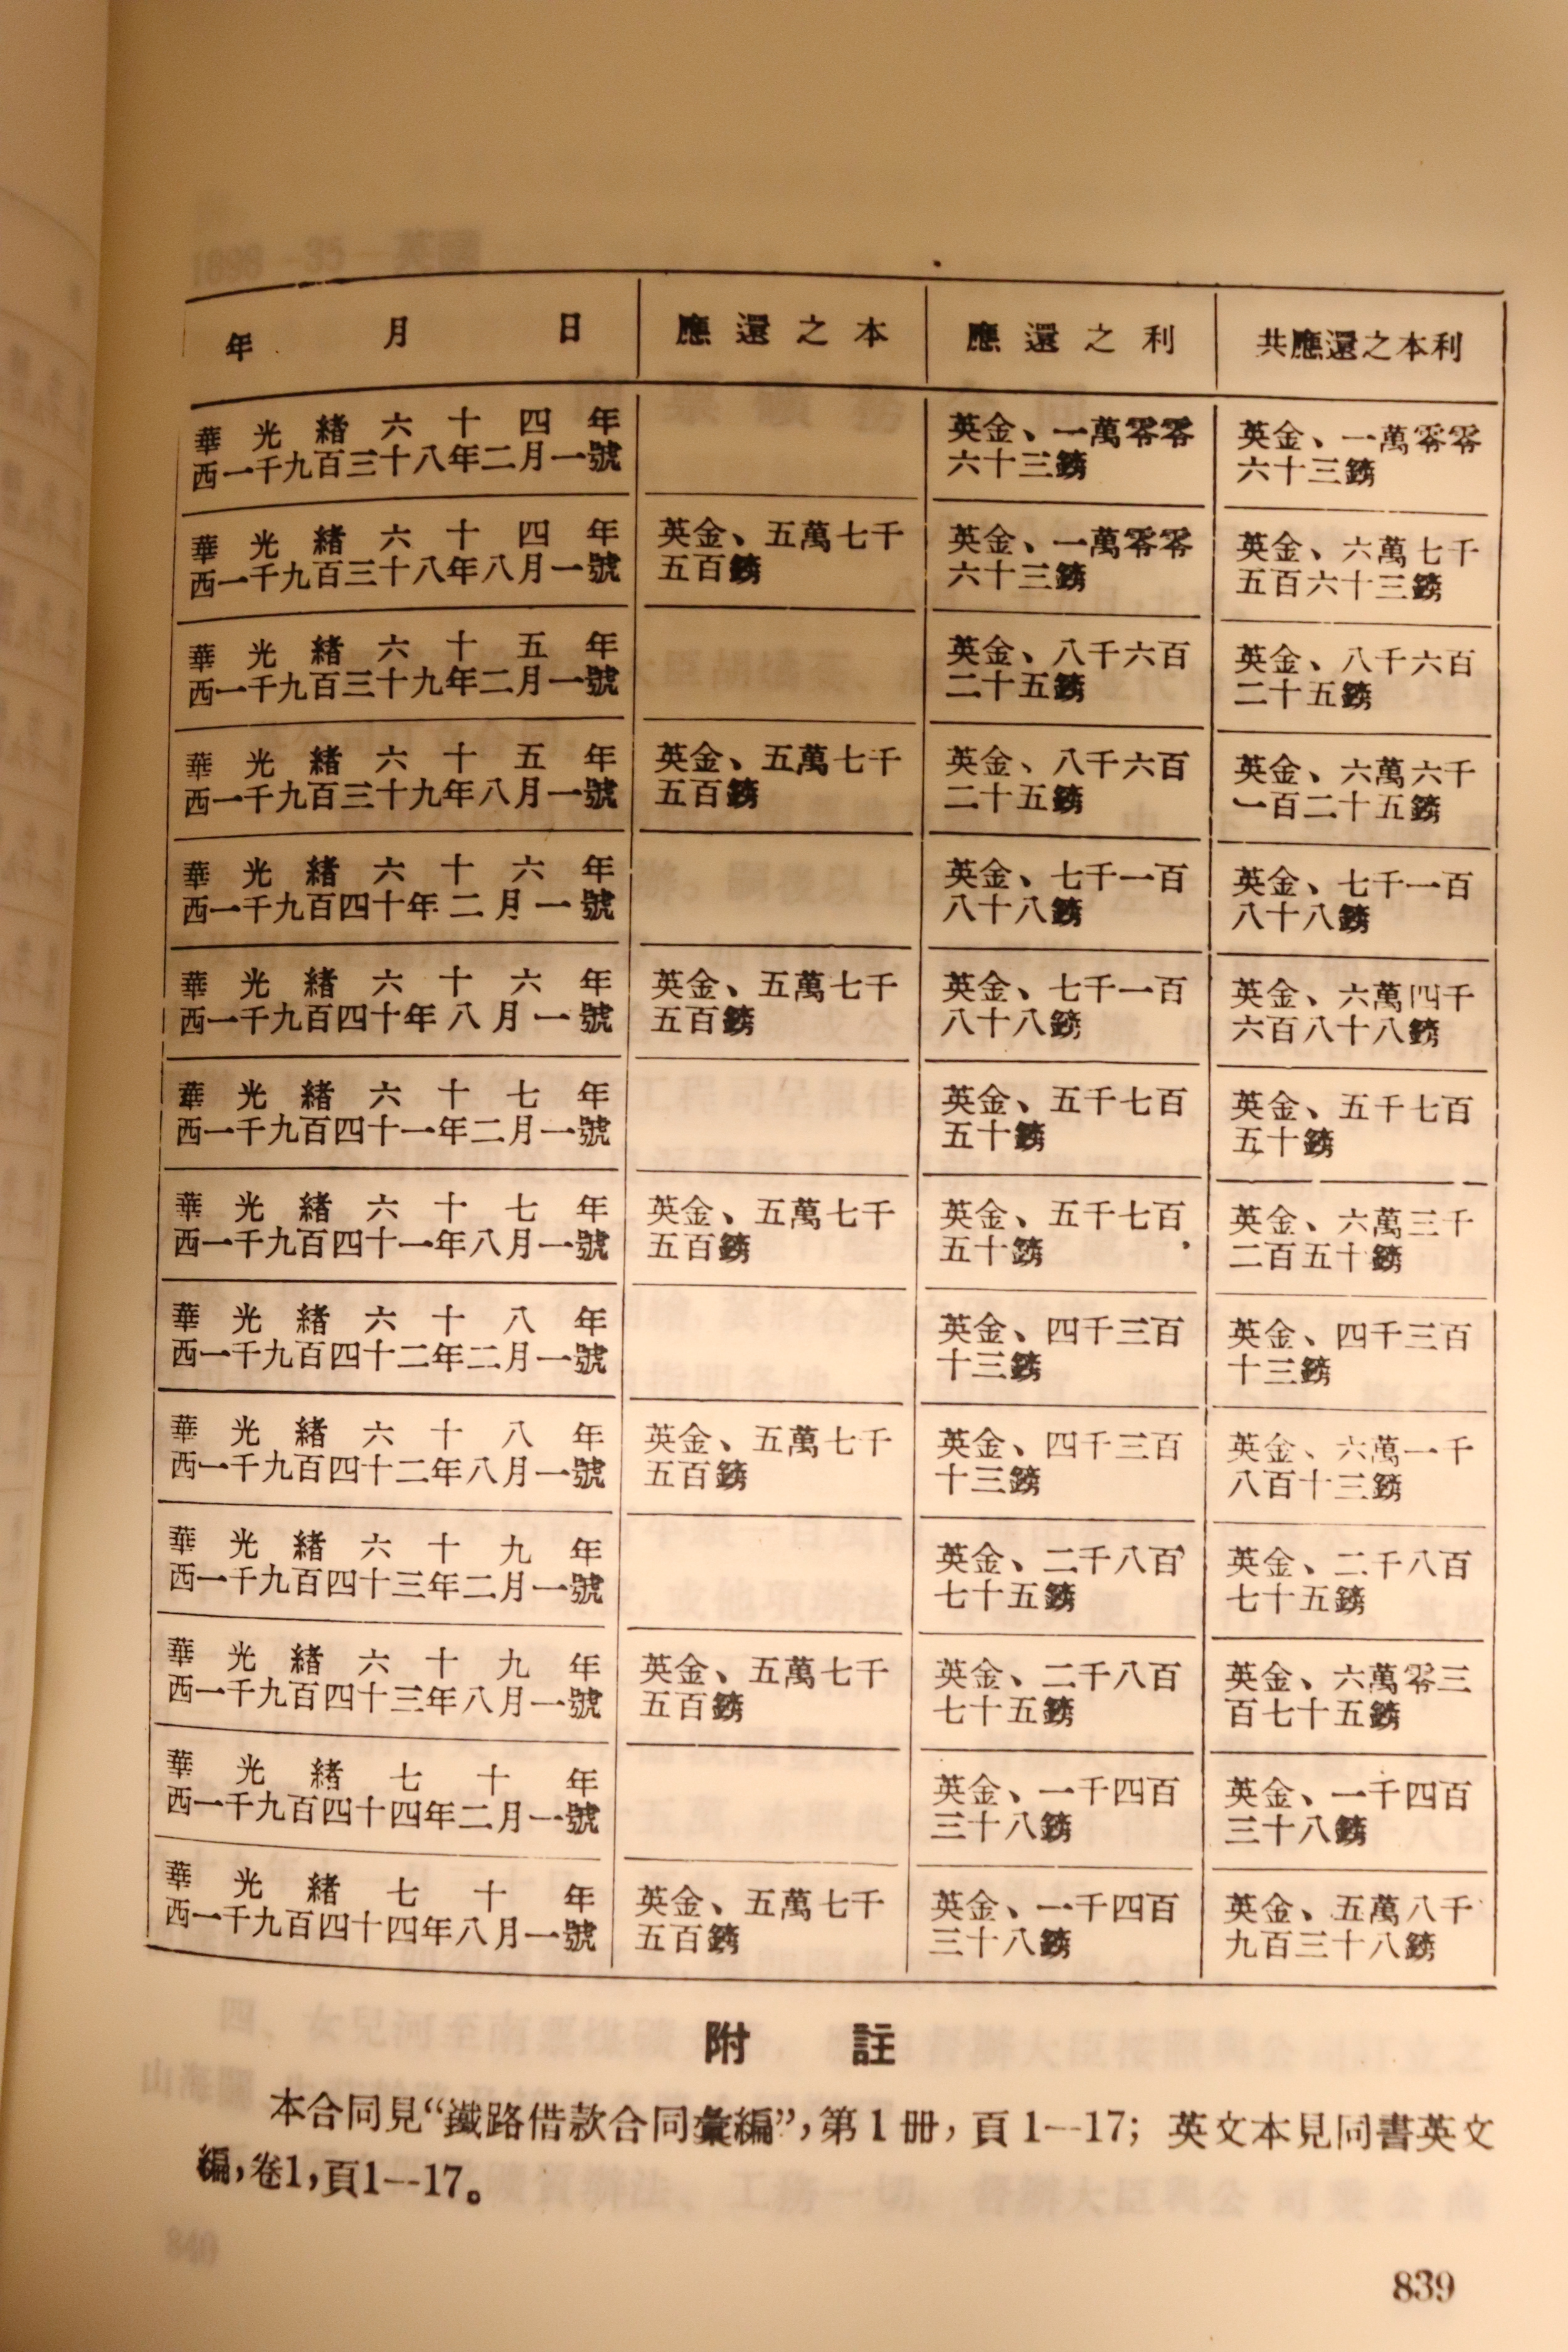 年 月 日 應還之本 應還之利 共應還之本利
華光緒六十四年 英金、一萬零零 英金、一萬零零
西一千九百三十八年二月一號 六十三鎊 六十三鎊
華光緒六十四年 英金、五萬七千 英金、一萬零零 英金、六萬七千
西一千九百三十八年八月一號 五百鎊 六十三鎊 五百六十三鎊
華光緒六十五年 英金、八千六百 英金、八千六百
西一千九百三十九年二月一號 二十五鎊 二十五鎊
華光緒六十五年 英金、五萬七千 英金、八千六百 英金、六萬六千
西一千九百三十九年八月一號 五百鎊 二十五鎊 一百二十五鎊
華光緒六十六年 英金、七千一百 英金、七千一百
西一千九百四十年二月一號 八十八鎊 八十八鎊
華光緒六十六年 英金、五萬七千 英金、七千一百 英金、六萬四千
西一千九百四十年八月一號 五百鎊 八十八鎊 六百八十八鎊
華光緒六十七年 英金、五千七百 英金、五千七百
西一千九百四十一年二月一號 五十鎊 五十鎊
華光緒六十七年 英金、五萬七千 英金、五千七百 英金、六萬三千
西一千九百四十一年八月一號 五百鎊 五十鎊 二百五十鎊
華光緒六十八年 英金、四千三百 英金、四千三百
西一千九百四十二年二月一號 十三鎊 十三鎊
華光緒六十八年 英金、五萬七千 英金、四千三百 英金、六萬一千
西一千九百四十二年八月一號 五百鎊 十三鎊 八百十三鎊
華光緒六十九年 英金、二千八百 英金、二千八百
西一千九百四十三年二月一號 七十五鎊 七十五鎊
華光緒六十九年 英金、五萬七千 英金、二千八百 英金、六萬零三
西一千九百四十三年八月一號 五百鎊 七十五鎊 百七十五鎊
華光緒七十年 英金、一千四百 英金、一千四百
西一千九百四十四年二月一號 三十八鎊 三十八鎊
華光緒七十年 英金、五萬七千 英金、一千四百 英金、五萬八千
西一千九百四十四年八月一號 五百鎊 三十八鎊 九百三十八鎊
附 註
本合同見“鐵路借款合同彙編”，第1冊，頁1—17；英文本見同書英文
編，卷1，頁1—17。
839